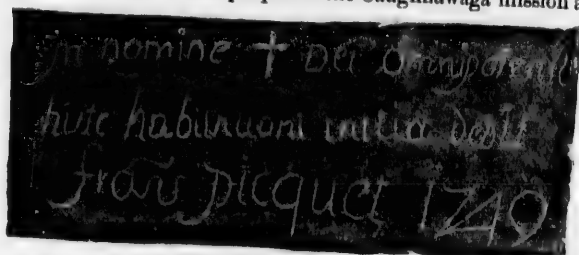 the Caughnawaga mission
in nomine † Dei Omnipotenti
huic habitationi initia dedit
frans picquet 1749